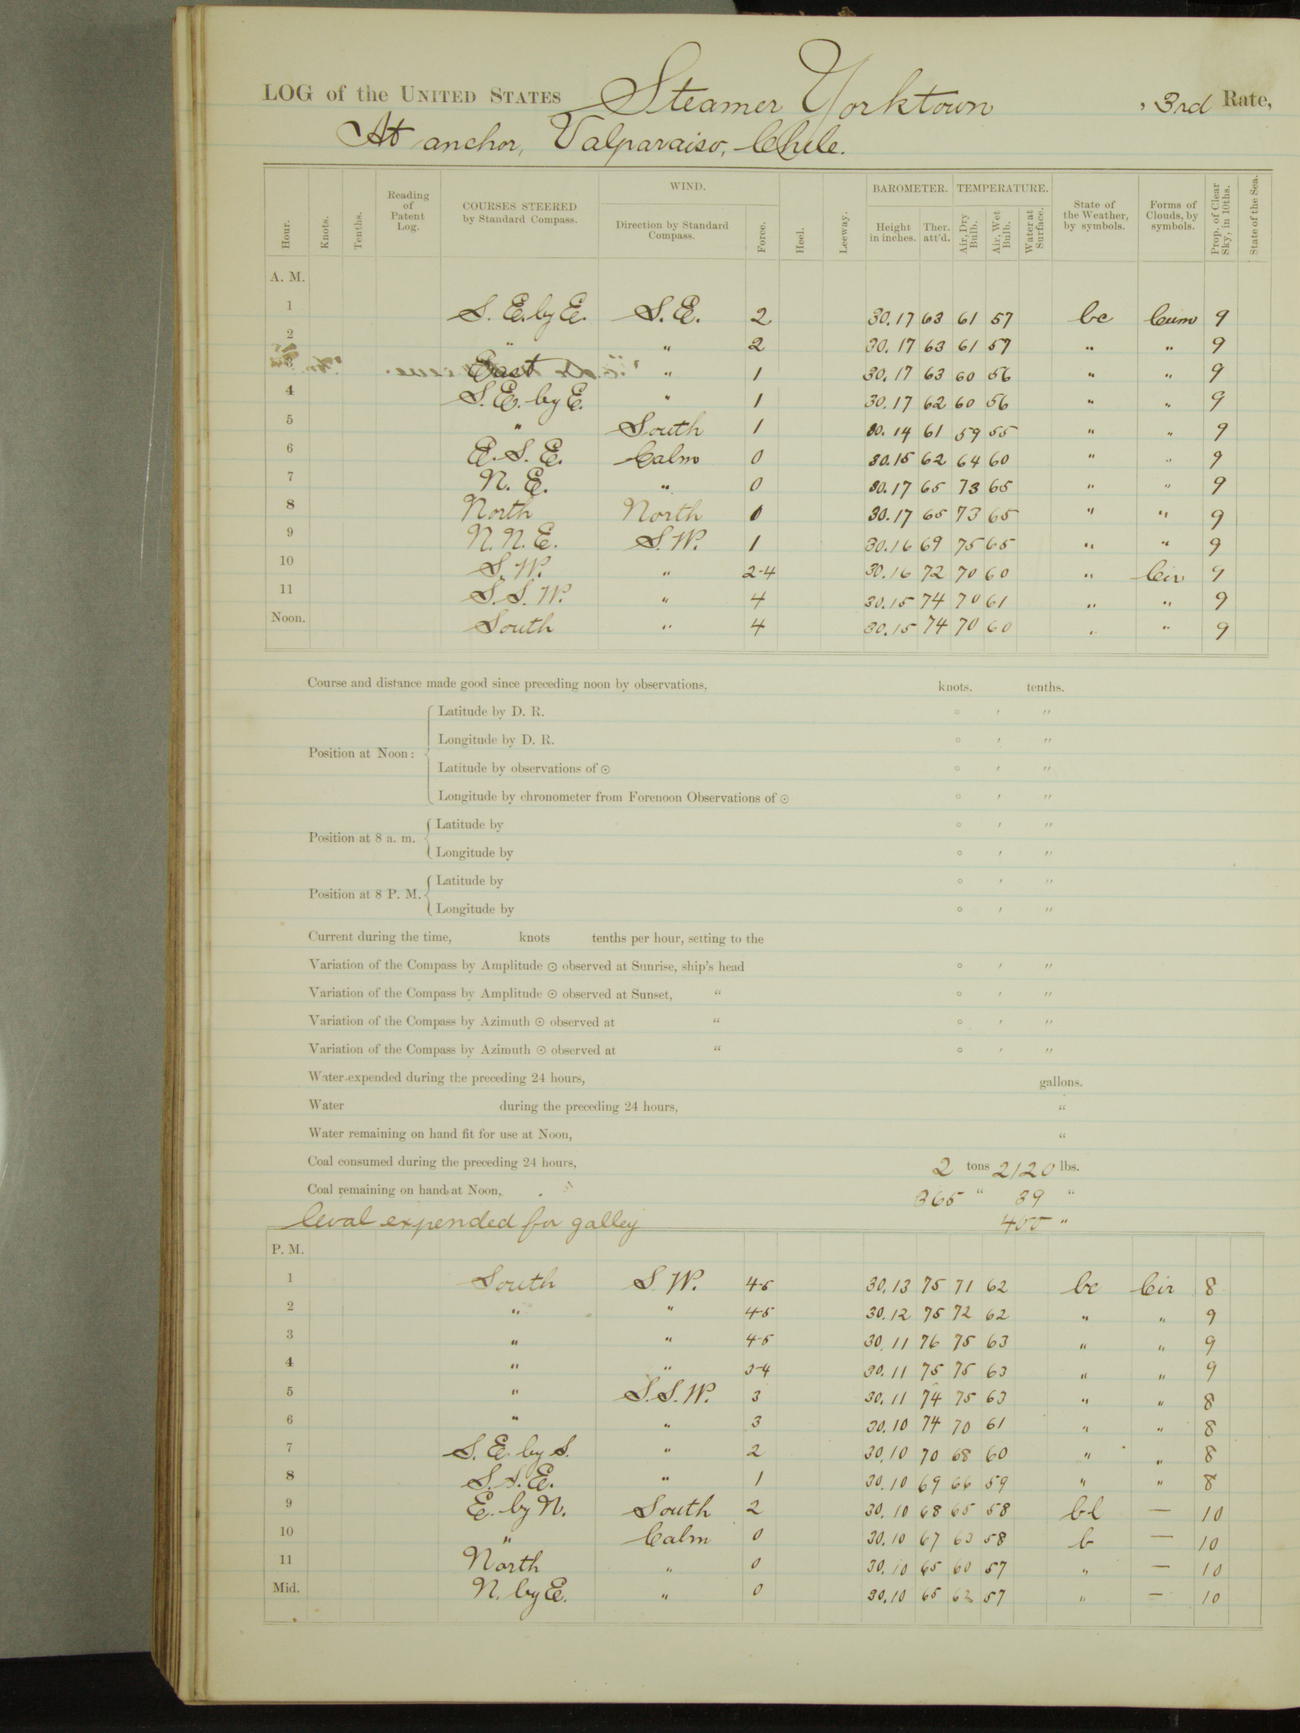 LOG of the UNITED STATES Steamer Yorktown , 3rd Rate,
At anchor, Valparaiso, Chile.
Hour. Knots. Tenths. Reading of Patent Log. COURSES STEERED by Standard Compass. WIND. Direction by Standard Compass. Force. Heel. Leeway. BAROMETER. Height in inches. Ther. att'd. TEMPERATURE. Air, Dry Bulb. Air, Wet Bulb. Water at Surface. State of the Weather, by symbols. Forms of Clouds, by symbols. Prop. of Clear Sky, in 10ths. State of the Sea.
A. M.
1 S. E. by E. S. E. 2 30.17 63 61 57 bc Cum 9
2 " " 2 30.17 63 61 57 " " 9
3 East " 1 30.17 63 60 56 " " 9
4 S. E. by E. " 1 30.17 62 60 56 " " 9
5 " South 1 30.14 61 59 55 " " 9
6 E. S. E. Calm 0 30.15 62 64 60 " " 9
7 N. E. " 0 30.17 65 73 65 " " 9
8 North North 0 30.17 65 73 65 " " 9
9 N. N. E. S. W. 1 30.16 69 75 65 " " 9
10 S. W. " 2-4 30.16 72 70 60 " Cir 9
11 S. S. W. " 4 30.15 74 70 61 " " 9
Noon. South " 4 30.15 74 70 60 " " 9
Course and distance made good since preceding noon by observations, knots. tenths.
Position at Noon: Latitude by D. R. ° ′ ″
Longitude by D. R. ° ′ ″
Latitude by observations of ☉ ° ′ ″
Longitude by chronometer from Forenoon Observations of ☉ ° ′ ″
Position at 8 a. m. Latitude by ° ′ ″
Longitude by ° ′ ″
Position at 8 P. M. Latitude by ° ′ ″
Longitude by ° ′ ″
Current during the time, knots tenths per hour, setting to the
Variation of the Compass by Amplitude ☉ observed at Sunrise, ship's head ° ′ ″
Variation of the Compass by Amplitude ☉ observed at Sunset, " ° ′ ″
Variation of the Compass by Azimuth ☉ observed at " ° ′ ″
Variation of the Compass by Azimuth ☉ observed at " ° ′ ″
Water expended during the preceding 24 hours, gallons.
Water during the preceding 24 hours, "
Water remaining on hand fit for use at Noon, "
Coal consumed during the preceding 24 hours, 2 tons 2120 lbs.
Coal remaining on hand at Noon, 365 " 39 "
Coal expended for galley 400 "
P. M.
1 South S W. 4-5 30.13 75 71 62 bc Cir 8
2 " " 4-5 30.12 75 72 62 " " 9
3 " " 4-5 30.11 76 75 63 " " 9
4 " " 3-4 30.11 75 75 63 " " 9
5 " S. S. W. 3 30.11 74 75 63 " " 8
6 " " 3 30.10 74 70 61 " " 8
7 S. E. by S. " 2 30.10 70 68 60 " " 8
8 S. S. E. " 1 30.10 69 66 59 " " 8
9 E. by N. South 2 30.10 68 65 58 bl — 10
10 " Calm 0 30.10 67 63 58 b — 10
11 North " 0 30.10 65 60 57 " — 10
Mid. N. by E. " 0 30.10 65 62 57 " — 10